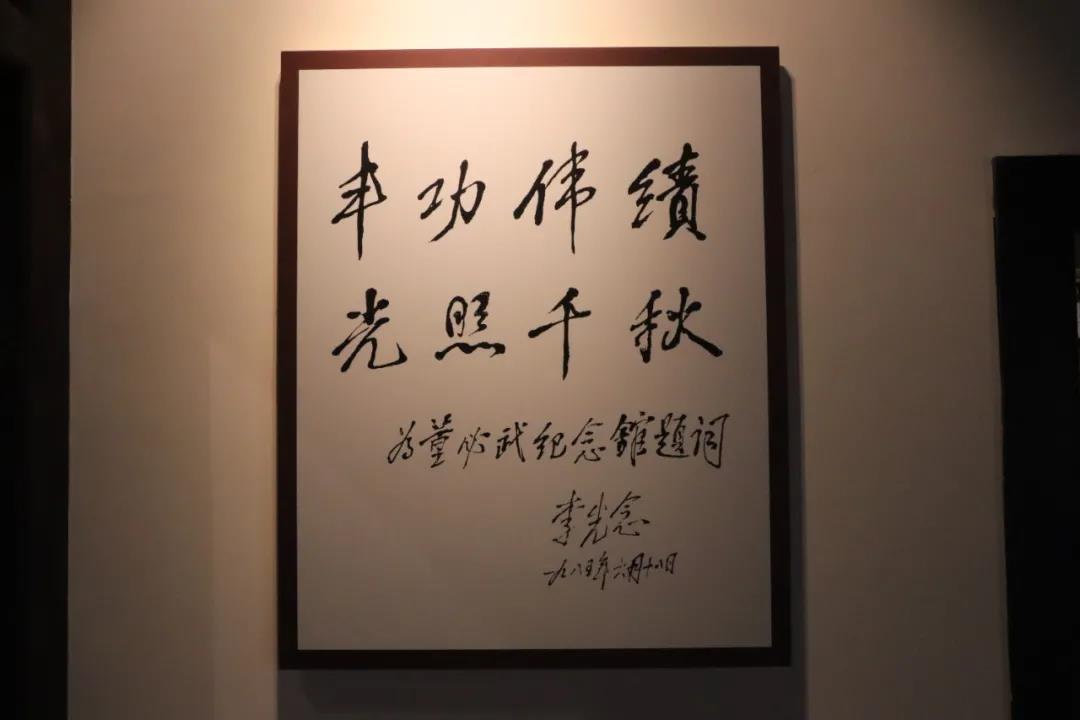 丰功伟绩
光照千秋
为董必武纪念馆题词
李先念
一九八五年六月十八日